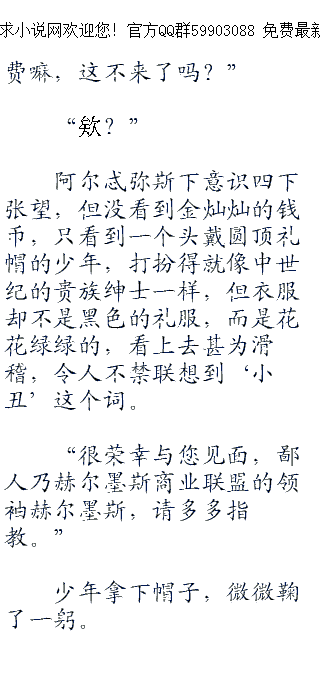 求小说网欢迎您! 官方QQ群59903088 免费最新
费嘛，这不来了吗？”
“欸？”
阿尔忒弥斯下意识四下
张望，但没看到金灿灿的钱
币，只看到一个头戴圆顶礼
帽的少年，打扮得就像中世
纪的贵族绅士一样，但衣服
却不是黑色的礼服，而是花
花绿绿的，看上去甚为滑
稽，令人不禁联想到‘小
丑’这个词。
“很荣幸与您见面，鄙
人乃赫尔墨斯商业联盟的领
袖赫尔墨斯，请多多指
教。”
少年拿下帽子，微微鞠
了一躬。